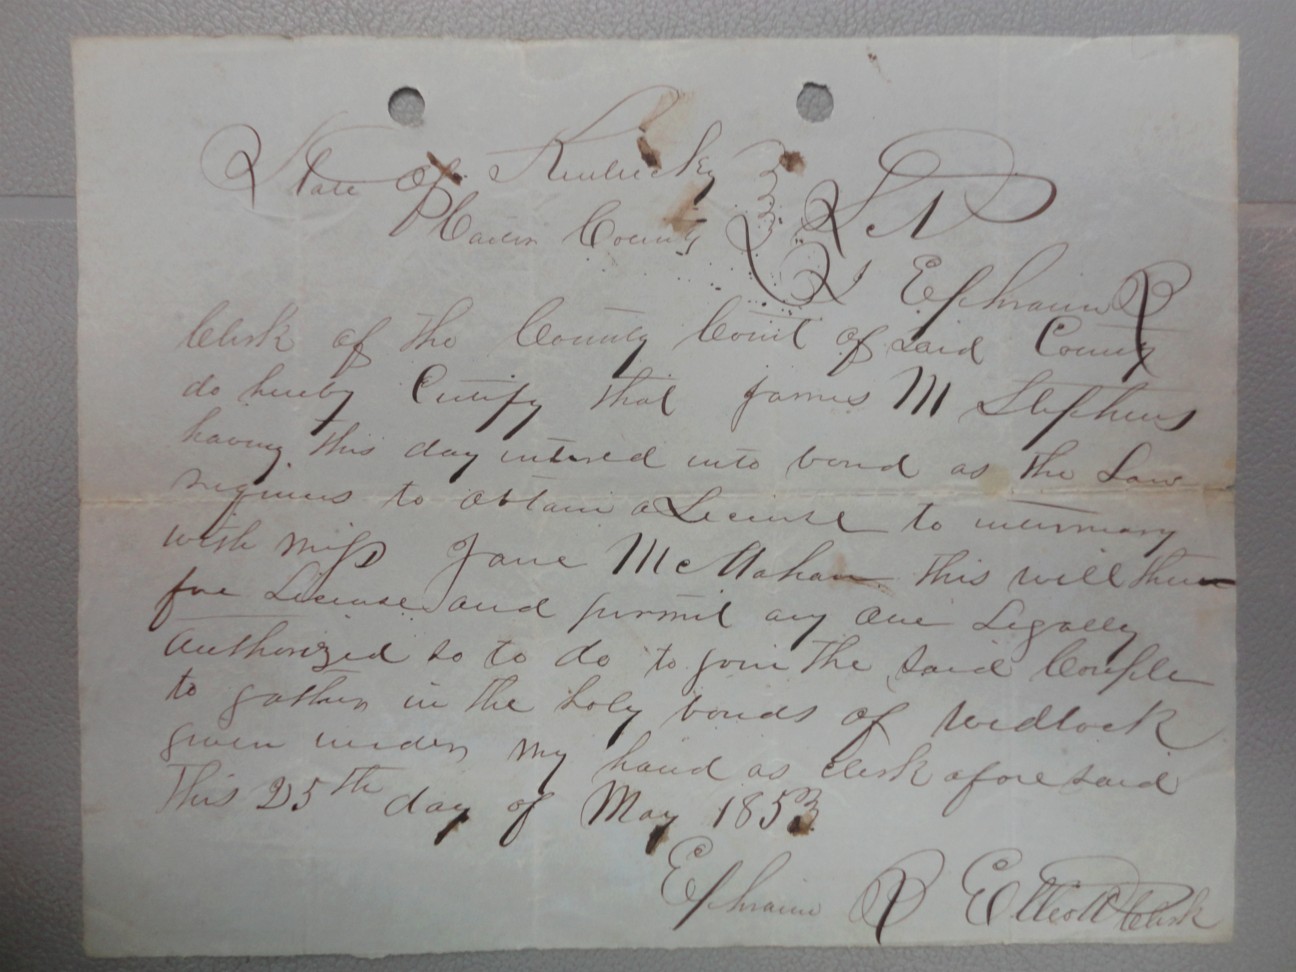 State of Kentucky
County Sct
I Ephraim P
Clerk of the County Court of said County
do hereby Certify that James M Stephens
having this day intered into bond as the Law
requires to obtain a License to intermarry
with Miss Jane McMahan this will there
fore License and permit any one Legally
authorized so to do to join the said Couple
to gather in the holy bonds of Wedlock
given under my hand as clerk afore said
This 25th day of May 1853
Ephraim P Elliott Clerk